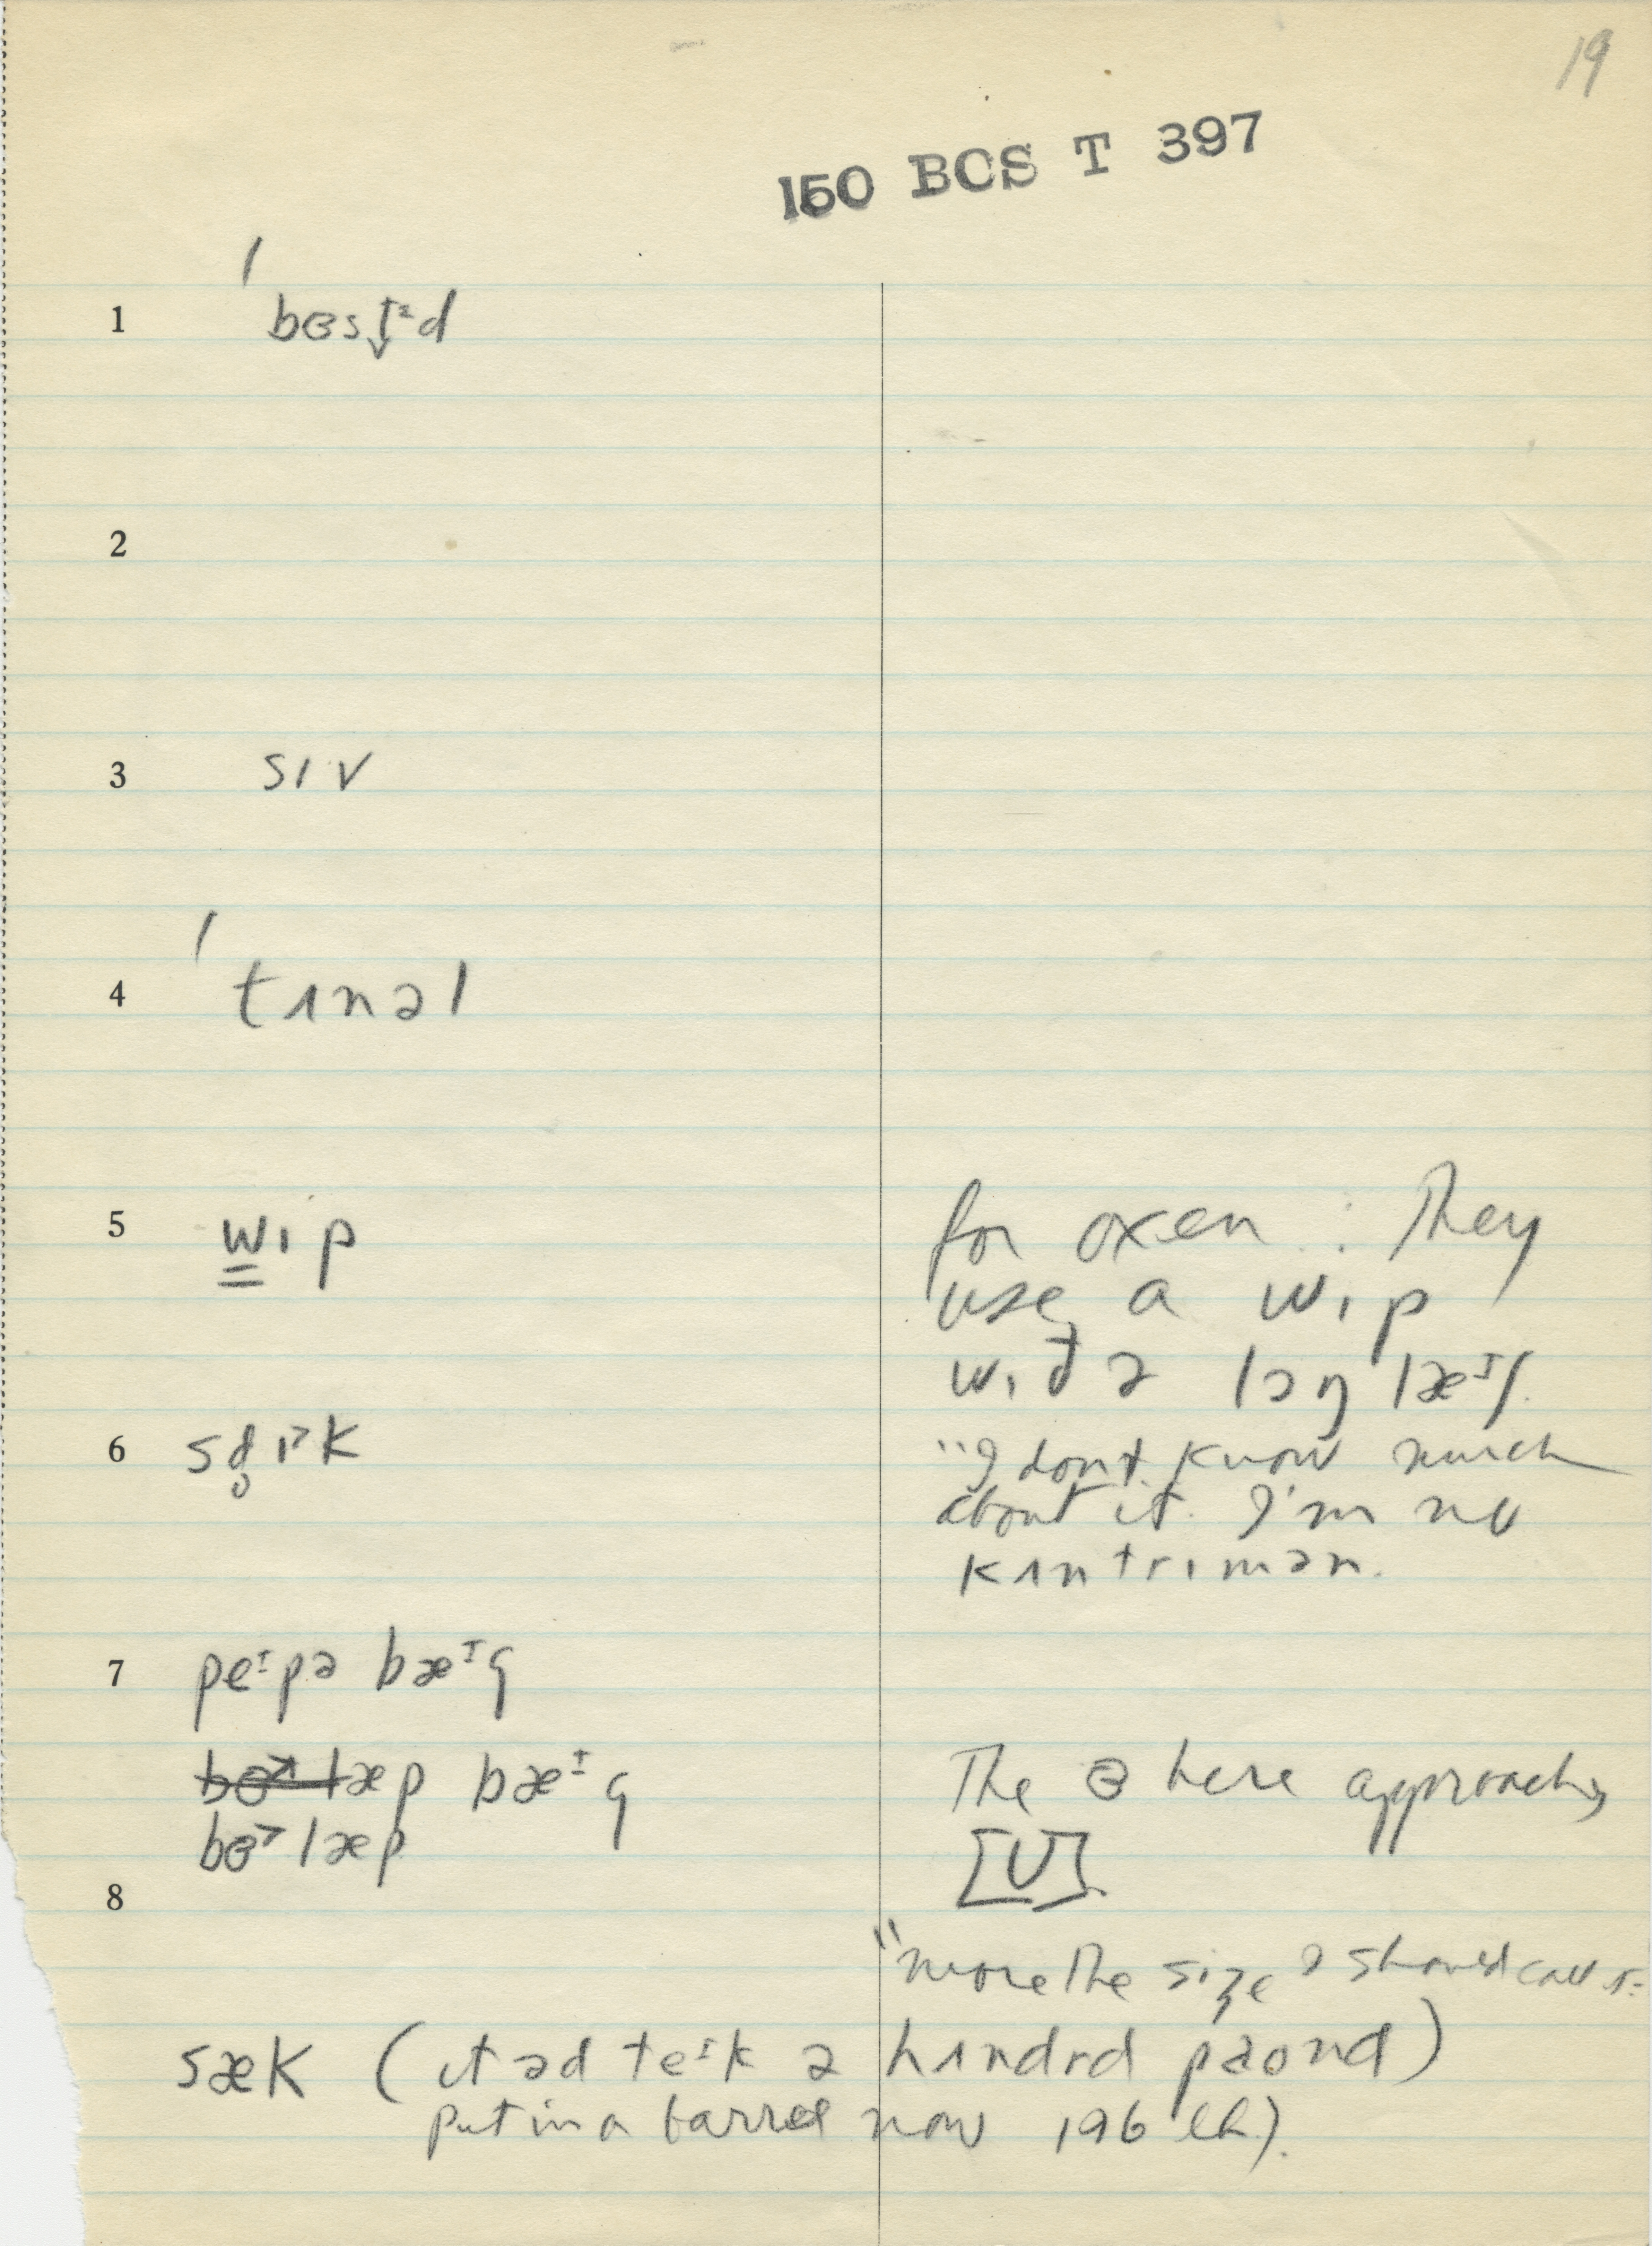 19
150 BCS T 397
1 ˈbɞsɪ̵ᶻd
2
3 sɪv
4 ˈtʌnəl
5 wɪp
for oxen : They
use a wɪp
wɪð ə lɔŋ læᴵʃ.
6 sd̥ɪ˃k
"I dont know much
about it. I'm no
kʌntrɪmən.
7 peᴵpə bæᴵg
læp bæᴵg
The ɵ here approaches
bɵ˃læp
[U].
8
"more the size I should call it
sæk (ɪt əd teᴵk ə hʌndrd paond)
put in a barrel now 196 lb).